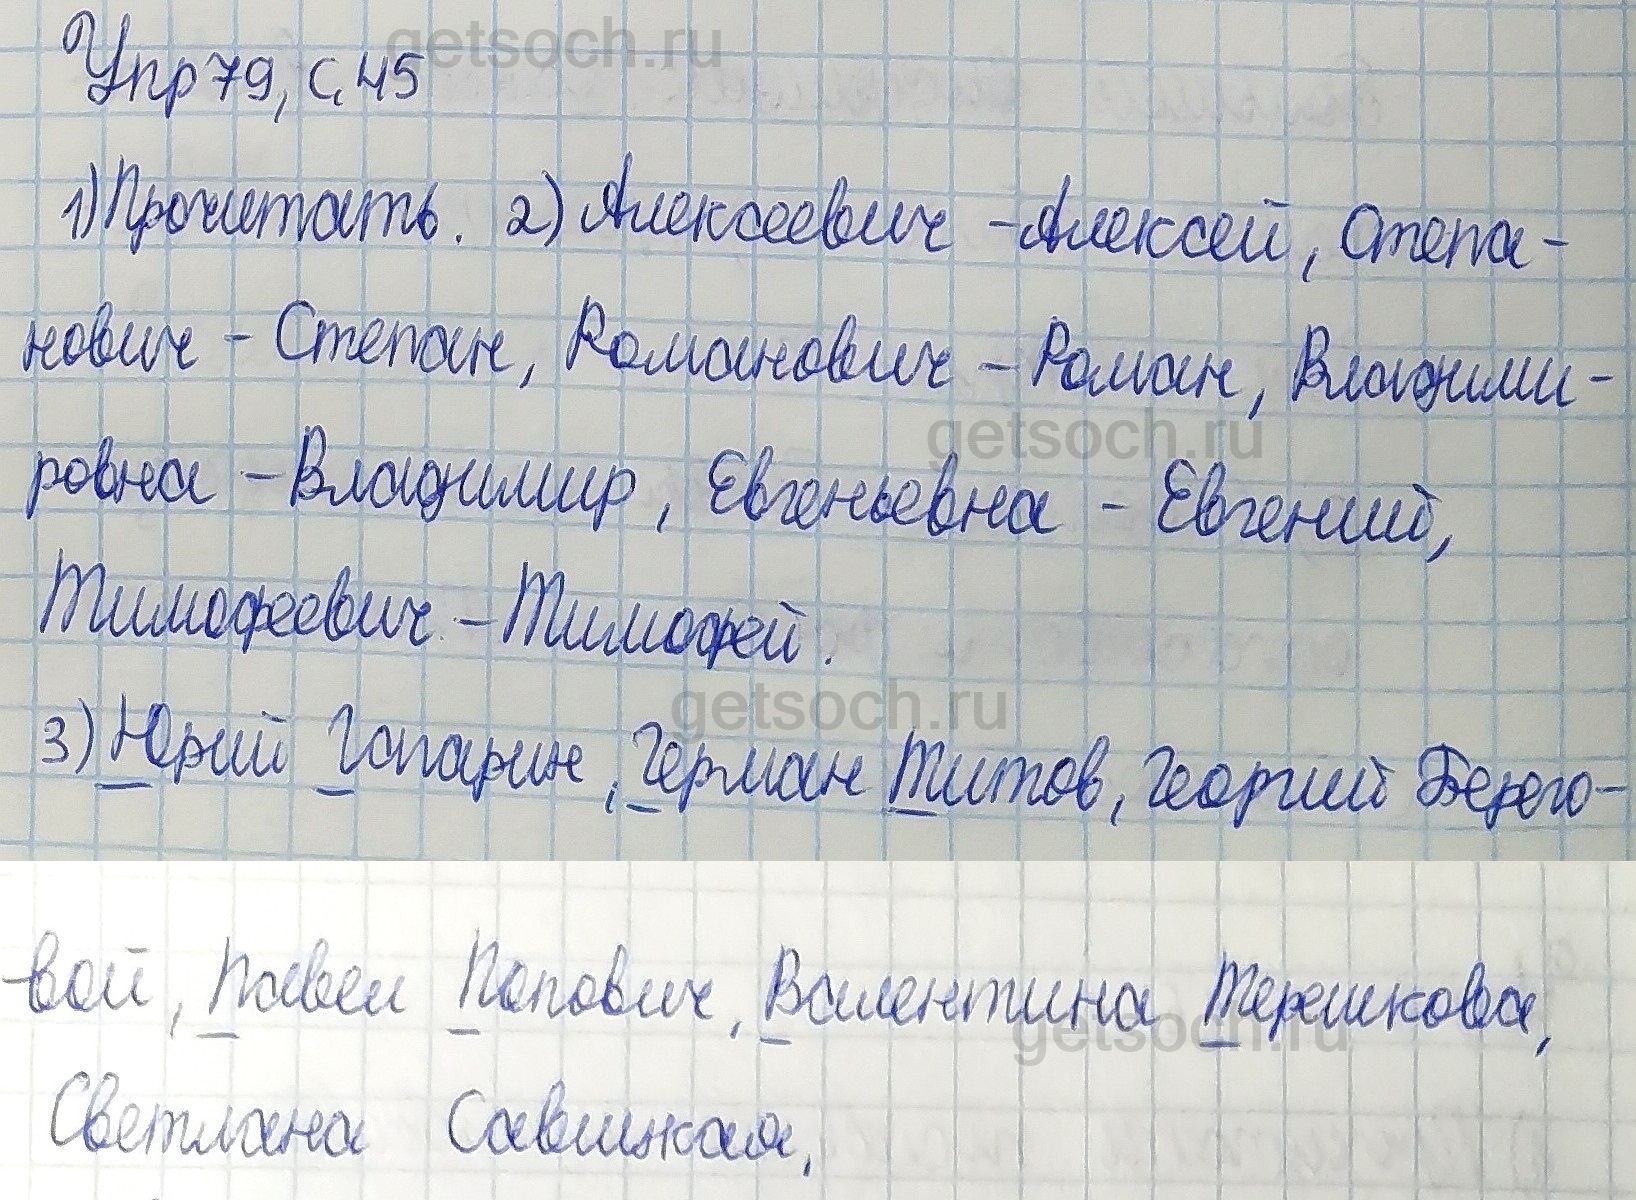 getsoch.ru
Упр 79, с. 45
1) Прочитать. 2) Алексеевич - Алексей, Степа-
нович - Степан, Романович - Роман, Владими-
getsoch.ru
ровна - Владимир, Евгеньевна - Евгений,
Тимофеевич - Тимофей.
getsoch.ru
3) Юрий Гагарин, Герман Титов, Георгий Берего-
вой, Павел Попович, Валентина Терешкова,
getsoch.ru
Светлана Савицкая,